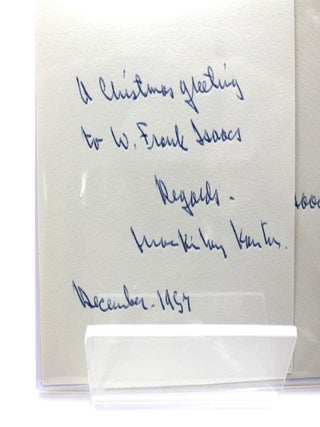 A Christmas greeting
to W. Frank Isaacs
Regards.
MacKinlay Kantor.
December. 1957